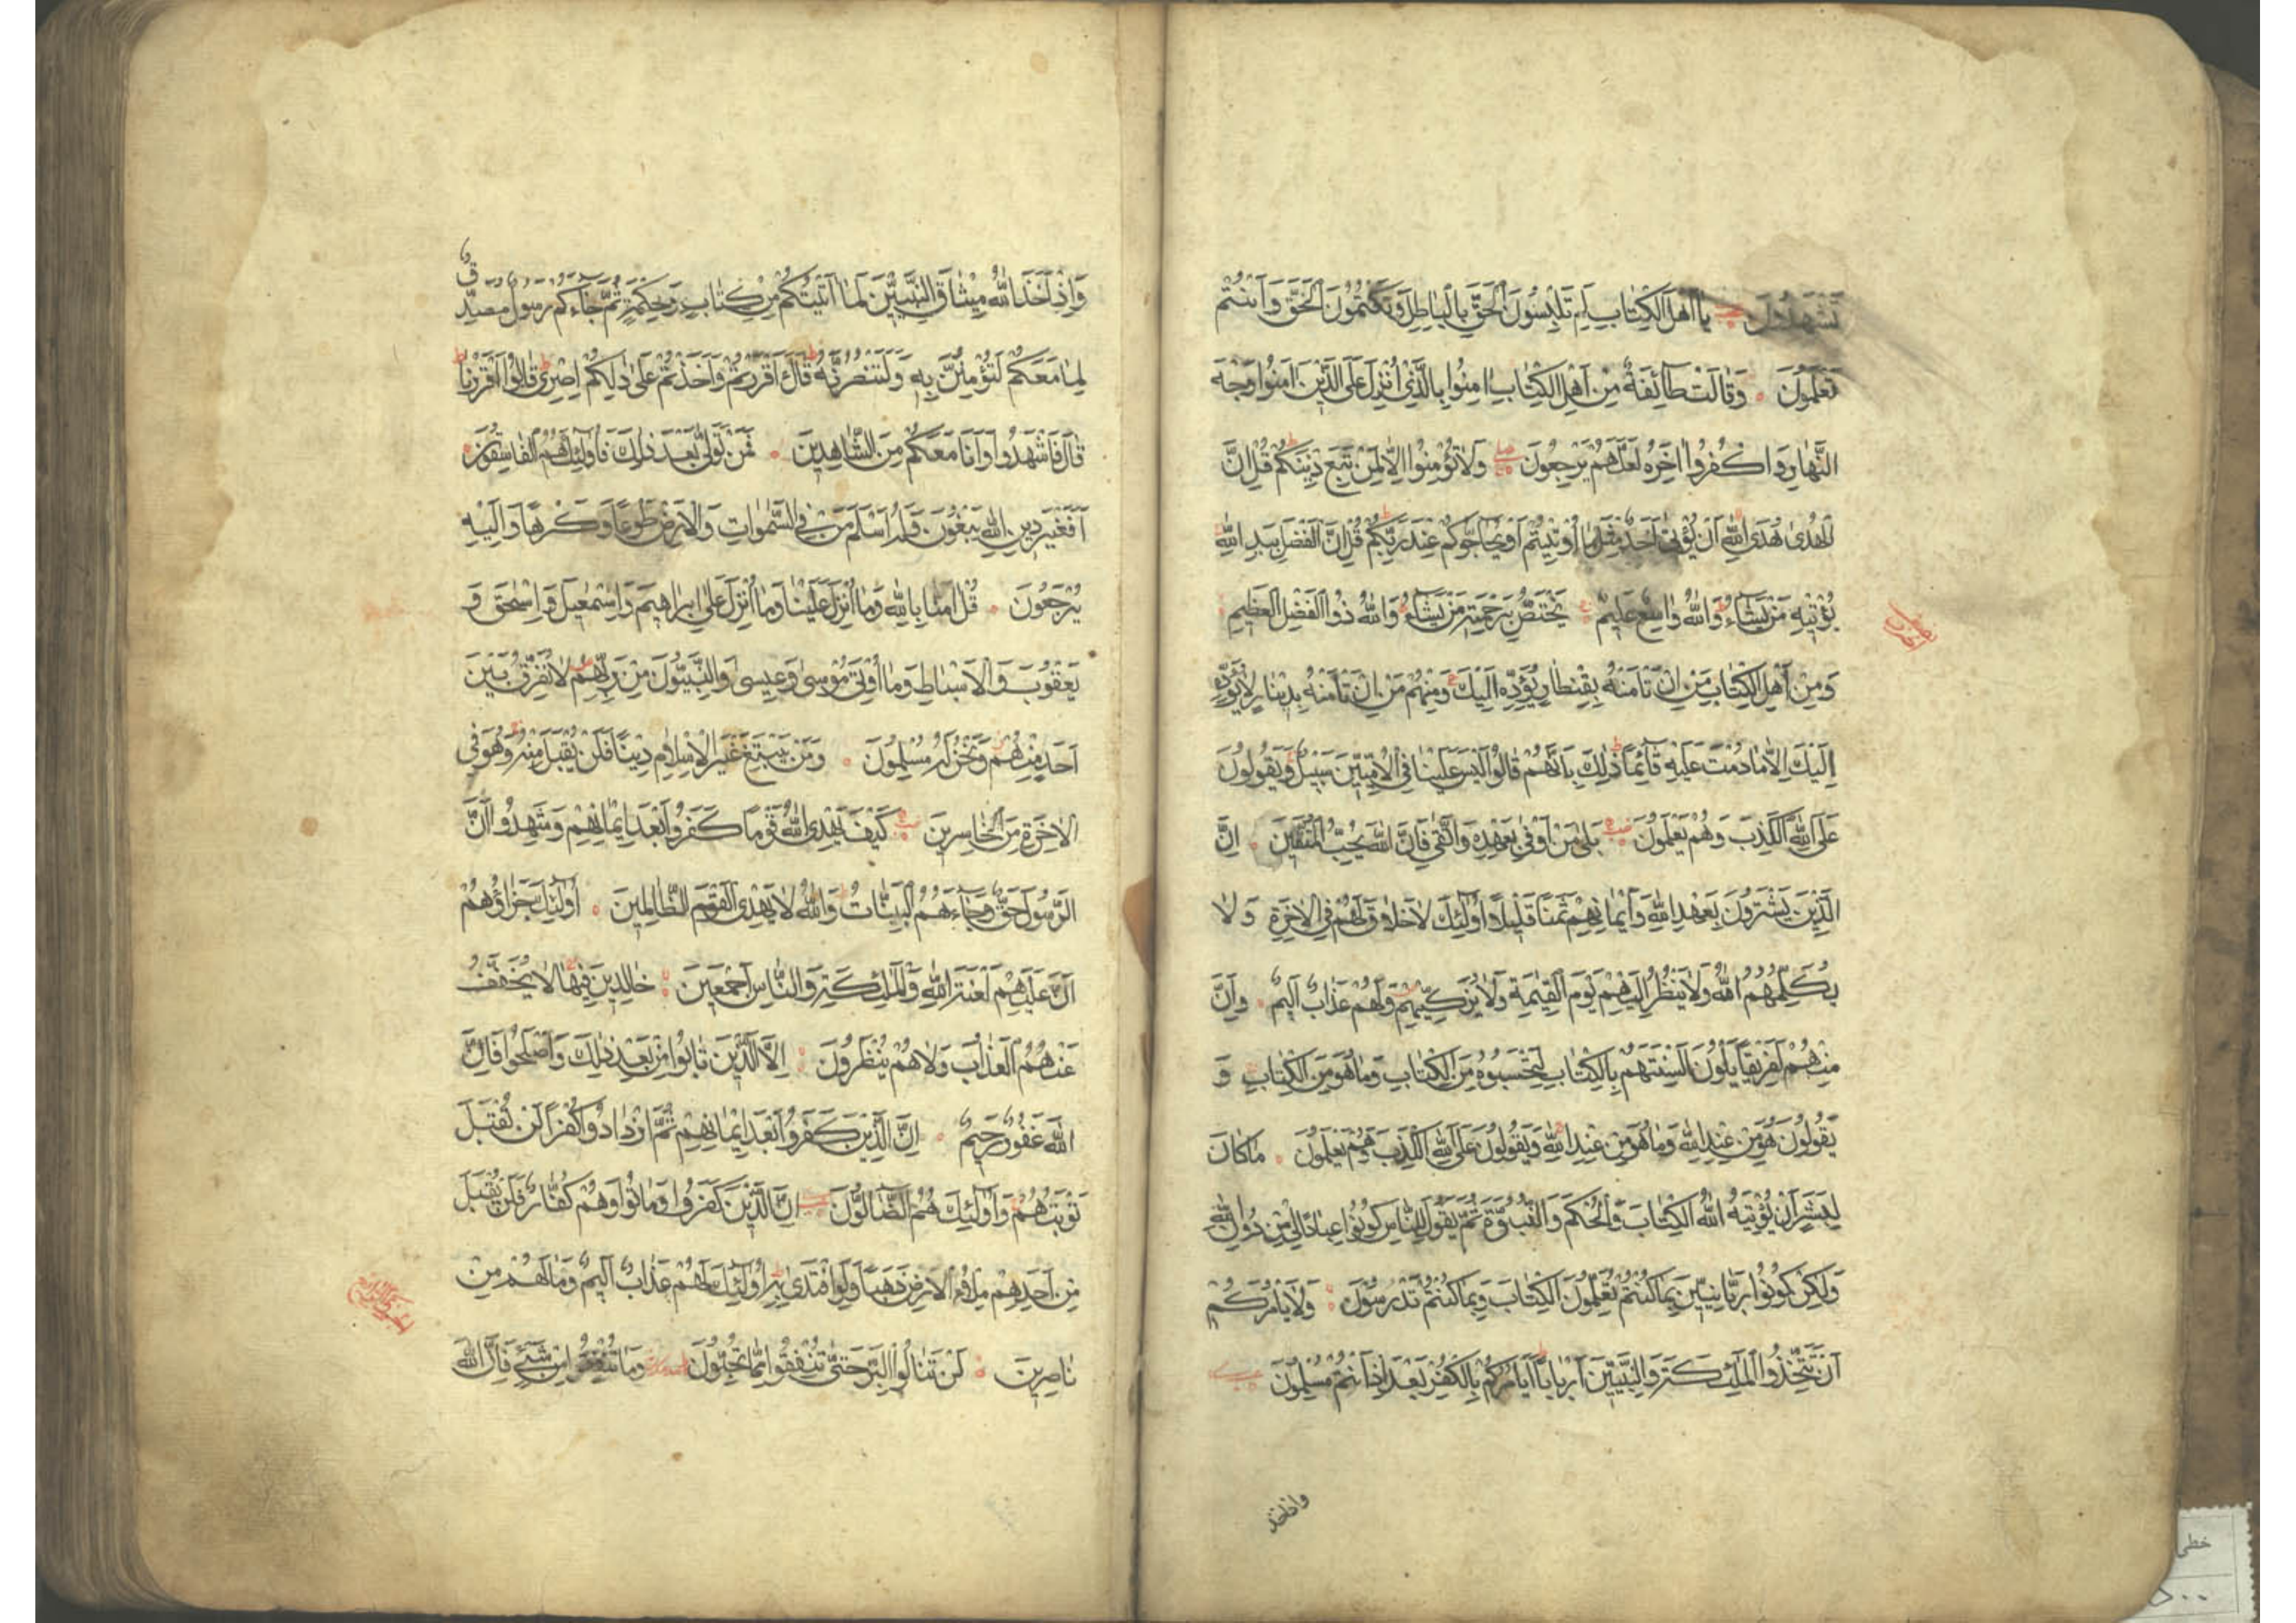 تَشْهَدُونَ يَا أَهْلَ الْكِتَابِ لِمَ تَلْبِسُونَ الْحَقَّ بِالْبَاطِلِ وَتَكْتُمُونَ الْحَقَّ وَأَنْتُمْ
تَعْلَمُونَ وَقَالَتْ طَائِفَةٌ مِنْ أَهْلِ الْكِتَابِ آمِنُوا بِالَّذِي أُنْزِلَ عَلَى الَّذِينَ آمَنُوا وَجْهَ
النَّهَارِ وَاكْفُرُوا آخِرَهُ لَعَلَّهُمْ يَرْجِعُونَ وَلَا تُؤْمِنُوا إِلَّا لِمَنْ تَبِعَ دِينَكُمْ قُلْ إِنَّ
الْهُدَى هُدَى اللَّهِ أَنْ يُؤْتَى أَحَدٌ مِثْلَ مَا أُوتِيتُمْ أَوْ يُحَاجُّوكُمْ عِنْدَ رَبِّكُمْ قُلْ إِنَّ الْفَضْلَ بِيَدِ اللَّهِ
يُؤْتِيهِ مَنْ يَشَاءُ وَاللَّهُ وَاسِعٌ عَلِيمٌ يَخْتَصُّ بِرَحْمَتِهِ مَنْ يَشَاءُ وَاللَّهُ ذُو الْفَضْلِ الْعَظِيمِ
وَمِنْ أَهْلِ الْكِتَابِ مَنْ إِنْ تَأْمَنْهُ بِقِنْطَارٍ يُؤَدِّهِ إِلَيْكَ وَمِنْهُمْ مَنْ إِنْ تَأْمَنْهُ بِدِينَارٍ لَا يُؤَدِّهِ
إِلَيْكَ إِلَّا مَا دُمْتَ عَلَيْهِ قَائِمًا ذَلِكَ بِأَنَّهُمْ قَالُوا لَيْسَ عَلَيْنَا فِي الْأُمِّيِّينَ سَبِيلٌ وَيَقُولُونَ
عَلَى اللَّهِ الْكَذِبَ وَهُمْ يَعْلَمُونَ بَلَى مَنْ أَوْفَى بِعَهْدِهِ وَاتَّقَى فَإِنَّ اللَّهَ يُحِبُّ الْمُتَّقِينَ إِنَّ
الَّذِينَ يَشْتَرُونَ بِعَهْدِ اللَّهِ وَأَيْمَانِهِمْ ثَمَنًا قَلِيلًا أُولَئِكَ لَا خَلَاقَ لَهُمْ فِي الْآخِرَةِ وَلَا
يُكَلِّمُهُمُ اللَّهُ وَلَا يَنْظُرُ إِلَيْهِمْ يَوْمَ الْقِيَمَةِ وَلَا يُزَكِّيهِمْ وَلَهُمْ عَذَابٌ أَلِيمٌ وَإِنَّ
مِنْهُمْ لَفَرِيقًا يَلْوُونَ أَلْسِنَتَهُمْ بِالْكِتَابِ لِتَحْسَبُوهُ مِنَ الْكِتَابِ وَمَا هُوَ مِنَ الْكِتَابِ وَ
يَقُولُونَ هُوَ مِنْ عِنْدِ اللَّهِ وَمَا هُوَ مِنْ عِنْدِ اللَّهِ وَيَقُولُونَ عَلَى اللَّهِ الْكَذِبَ وَهُمْ يَعْلَمُونَ مَا كَانَ
لِبَشَرٍ أَنْ يُؤْتِيَهُ اللَّهُ الْكِتَابَ وَالْحُكْمَ وَالنُّبُوَّةَ ثُمَّ يَقُولَ لِلنَّاسِ كُونُوا عِبَادًا لِي مِنْ دُونِ اللَّهِ
وَلَكِنْ كُونُوا رَبَّانِيِّينَ بِمَا كُنْتُمْ تُعَلِّمُونَ الْكِتَابَ وَبِمَا كُنْتُمْ تَدْرُسُونَ وَلَا يَأْمُرَكُمْ
أَنْ تَتَّخِذُوا الْمَلَئِكَةَ وَالنَّبِيِّينَ أَرْبَابًا أَيَأْمُرُكُمْ بِالْكُفْرِ بَعْدَ إِذْ أَنْتُمْ مُسْلِمُونَ
واذ اخذ
وَإِذْ أَخَذَ اللَّهُ مِيثَاقَ النَّبِيِّينَ لَمَا آتَيْتُكُمْ مِنْ كِتَابٍ وَحِكْمَةٍ ثُمَّ جَاءَكُمْ رَسُولٌ مُصَدِّقٌ
لِمَا مَعَكُمْ لَتُؤْمِنُنَّ بِهِ وَلَتَنْصُرُنَّهُ قَالَ أَأَقْرَرْتُمْ وَأَخَذْتُمْ عَلَى ذَلِكُمْ إِصْرِي قَالُوا أَقْرَرْنَا
قَالَ فَاشْهَدُوا وَأَنَا مَعَكُمْ مِنَ الشَّاهِدِينَ فَمَنْ تَوَلَّى بَعْدَ ذَلِكَ فَأُولَئِكَ هُمُ الْفَاسِقُونَ
أَفَغَيْرَ دِينِ اللَّهِ يَبْغُونَ وَلَهُ أَسْلَمَ مَنْ فِي السَّمَوَاتِ وَالْأَرْضِ طَوْعًا وَكَرْهًا وَإِلَيْهِ
يُرْجَعُونَ قُلْ آمَنَّا بِاللَّهِ وَمَا أُنْزِلَ عَلَيْنَا وَمَا أُنْزِلَ عَلَى إِبْرَاهِيمَ وَإِسْمَعِيلَ وَإِسْحَقَ وَ
يَعْقُوبَ وَالْأَسْبَاطِ وَمَا أُوتِيَ مُوسَى وَعِيسَى وَالنَّبِيُّونَ مِنْ رَبِّهِمْ لَا نُفَرِّقُ بَيْنَ
أَحَدٍ مِنْهُمْ وَنَحْنُ لَهُ مُسْلِمُونَ وَمَنْ يَبْتَغِ غَيْرَ الْإِسْلَامِ دِينًا فَلَنْ يُقْبَلَ مِنْهُ وَهُوَ فِي
الْآخِرَةِ مِنَ الْخَاسِرِينَ كَيْفَ يَهْدِي اللَّهُ قَوْمًا كَفَرُوا بَعْدَ إِيمَانِهِمْ وَشَهِدُوا أَنَّ
الرَّسُولَ حَقٌّ وَجَاءَهُمُ الْبَيِّنَاتُ وَاللَّهُ لَا يَهْدِي الْقَوْمَ الظَّالِمِينَ أُولَئِكَ جَزَاؤُهُمْ
أَنَّ عَلَيْهِمْ لَعْنَةَ اللَّهِ وَالْمَلَئِكَةِ وَالنَّاسِ أَجْمَعِينَ خَالِدِينَ فِيهَا لَا يُخَفَّفُ
عَنْهُمُ الْعَذَابُ وَلَا هُمْ يُنْظَرُونَ إِلَّا الَّذِينَ تَابُوا مِنْ بَعْدِ ذَلِكَ وَأَصْلَحُوا فَإِنَّ
اللَّهَ غَفُورٌ رَحِيمٌ إِنَّ الَّذِينَ كَفَرُوا بَعْدَ إِيمَانِهِمْ ثُمَّ ازْدَادُوا كُفْرًا لَنْ تُقْبَلَ
تَوْبَتُهُمْ وَأُولَئِكَ هُمُ الضَّالُّونَ إِنَّ الَّذِينَ كَفَرُوا وَمَاتُوا وَهُمْ كُفَّارٌ فَلَنْ يُقْبَلَ
مِنْ أَحَدِهِمْ مِلْءُ الْأَرْضِ ذَهَبًا وَلَوِ افْتَدَى بِهِ أُولَئِكَ لَهُمْ عَذَابٌ أَلِيمٌ وَمَا لَهُمْ مِنْ
نَاصِرِينَ لَنْ تَنَالُوا الْبِرَّ حَتَّى تُنْفِقُوا مِمَّا تُحِبُّونَ وَمَا تُنْفِقُوا مِنْ شَيْءٍ فَإِنَّ اللَّهَ
خطی